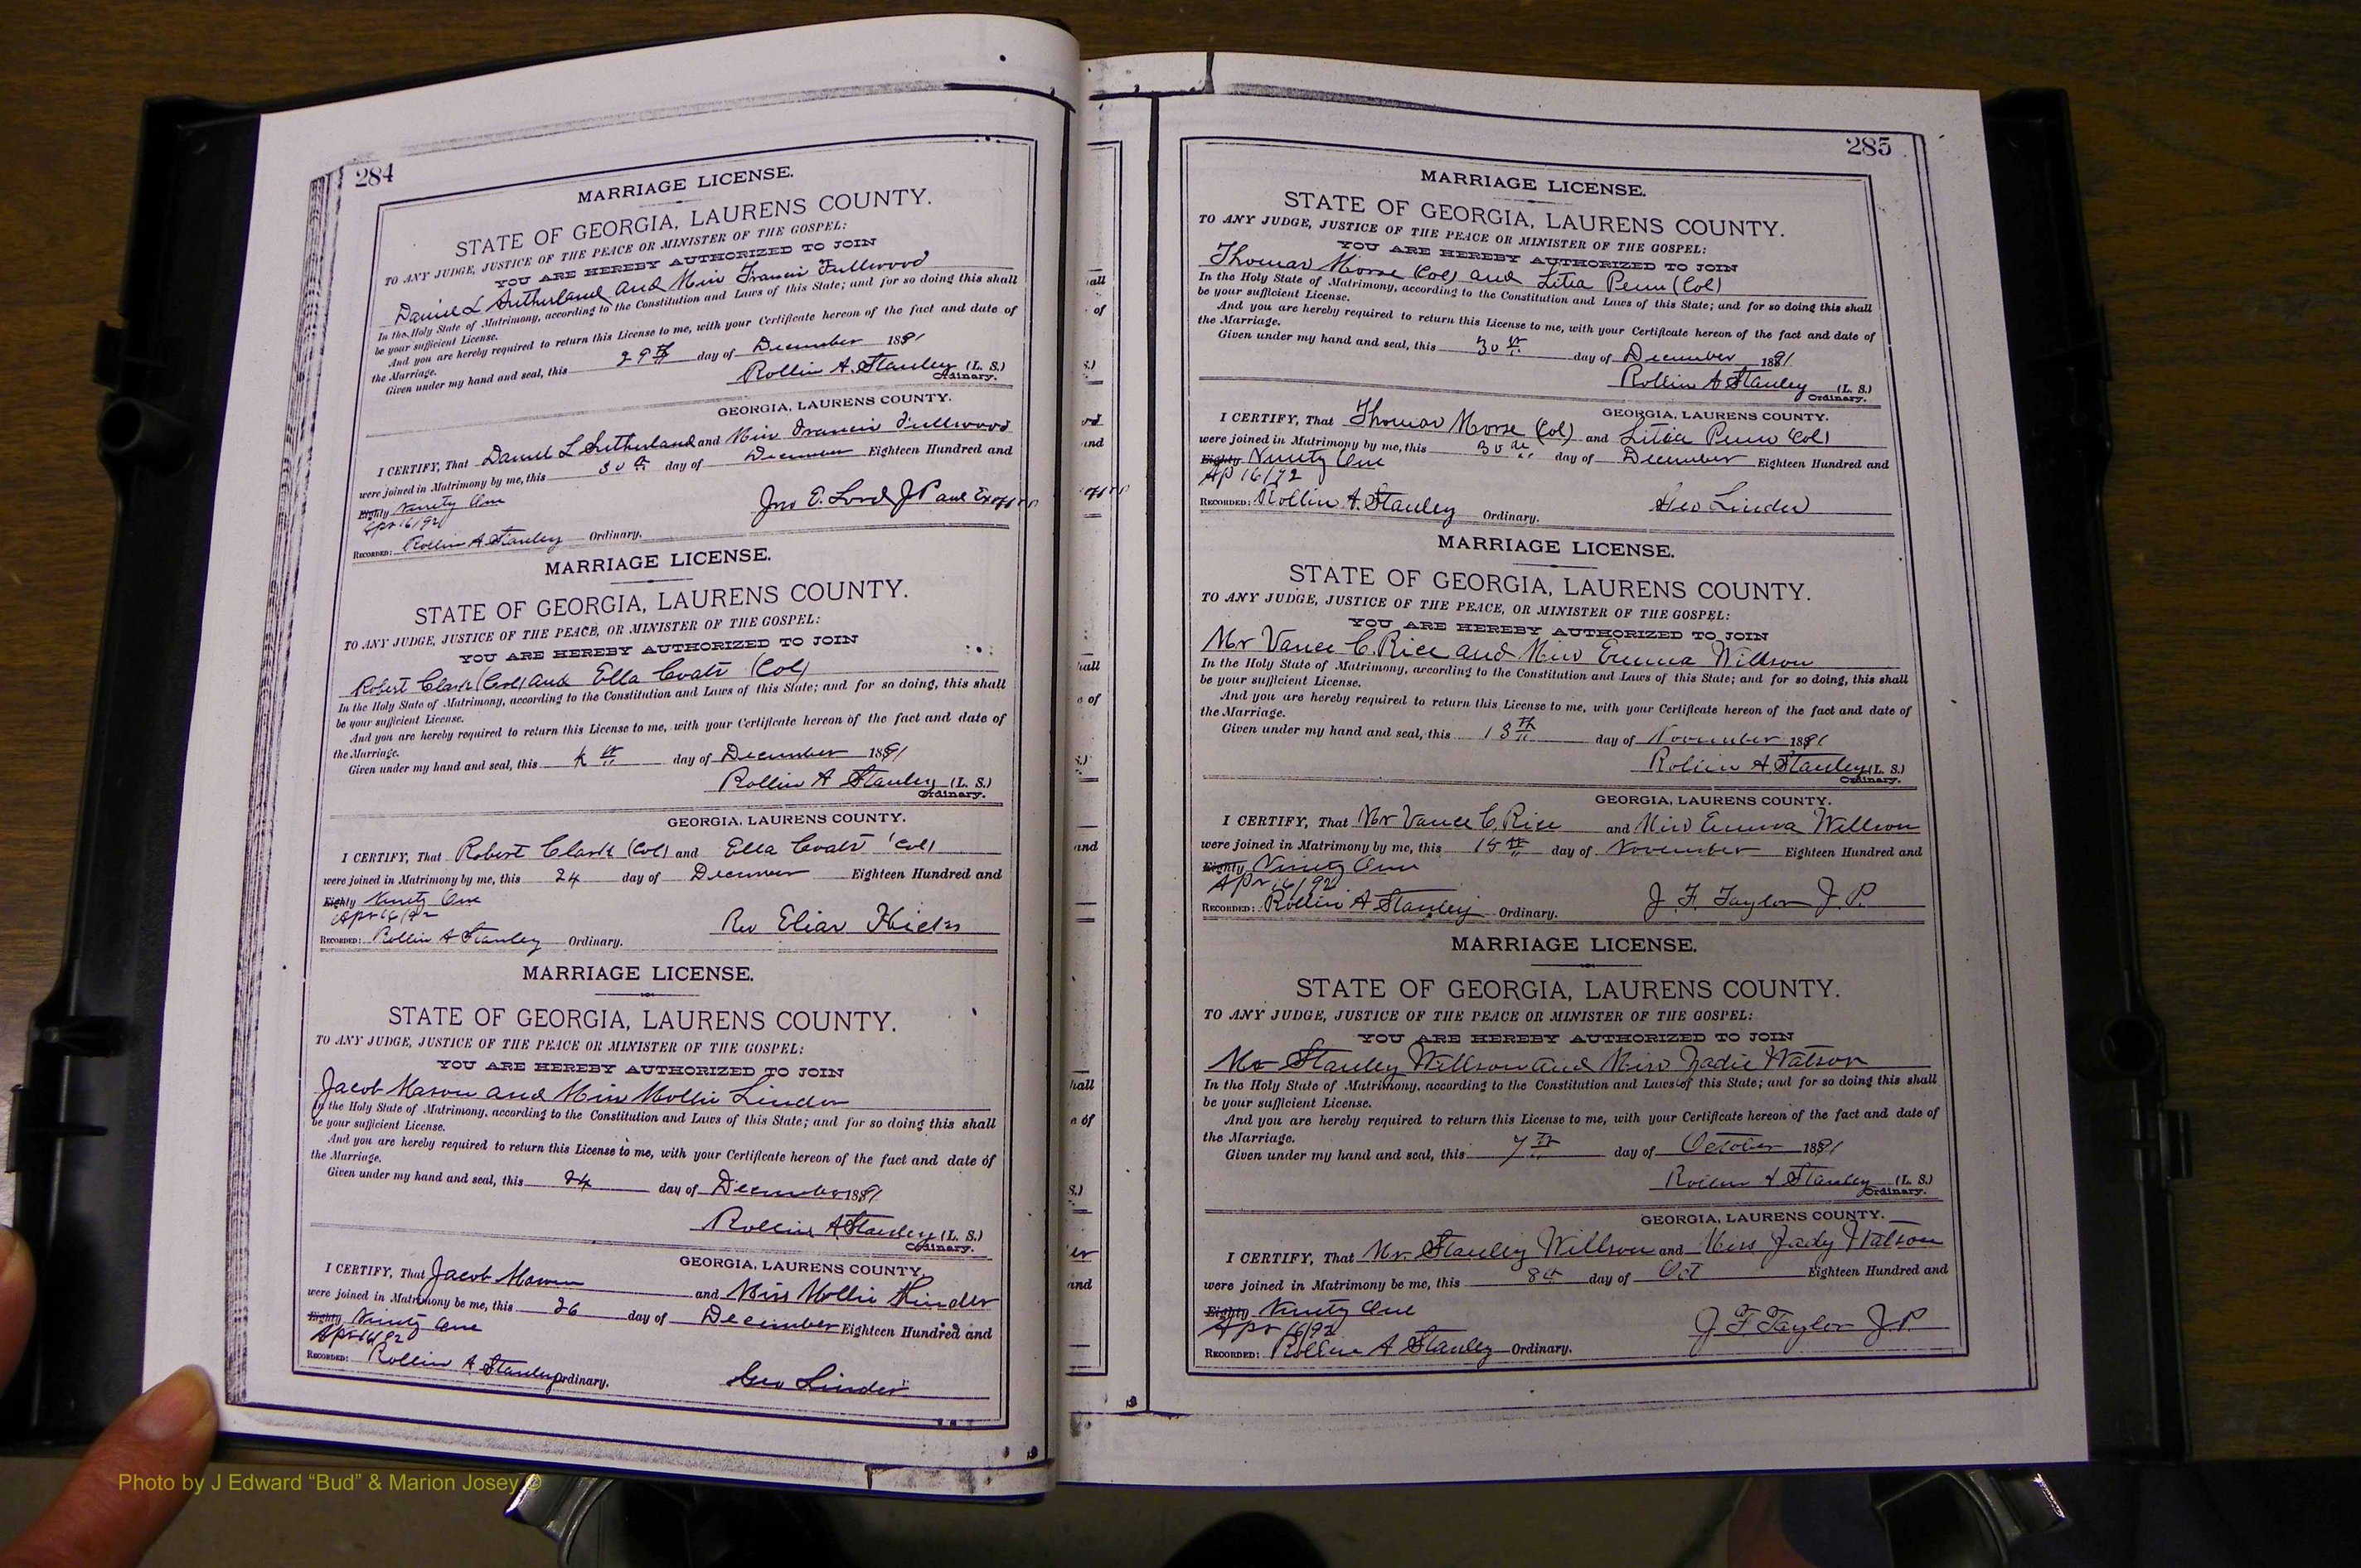 284
MARRIAGE LICENSE.
STATE OF GEORGIA, LAURENS COUNTY.
TO ANY JUDGE, JUSTICE OF THE PEACE OR MINISTER OF THE GOSPEL:
YOU ARE HEREBY AUTHORIZED TO JOIN
Daniel L Sutherland and Miss Francis Fullwood
In the Holy State of Matrimony, according to the Constitution and Laws of this State; and for so doing this shall
be your sufficient License.
And you are hereby required to return this License to me, with your Certificate hereon of the fact and date of
the Marriage.
Given under my hand and seal, this 29th day of December 1891
Rollin A. Stanley (L. S.)
Ordinary.
GEORGIA, LAURENS COUNTY.
I CERTIFY, That Daniel L Sutherland and Miss Francis Fullwood
were joined in Matrimony by me, this 30th day of December Eighteen Hundred and
Eighty Ninety One
Apr 16/92
Jno E. Lord J P and Ex off
RECORDED: Rollin A Stanley Ordinary.
MARRIAGE LICENSE.
STATE OF GEORGIA, LAURENS COUNTY.
TO ANY JUDGE, JUSTICE OF THE PEACE, OR MINISTER OF THE GOSPEL:
YOU ARE HEREBY AUTHORIZED TO JOIN
Robert Clark (Col) and Ella Coats (Col)
In the Holy State of Matrimony, according to the Constitution and Laws of this State; and for so doing, this shall
be your sufficient License.
And you are hereby required to return this License to me, with your Certificate hereon of the fact and date of
the Marriage.
Given under my hand and seal, this day of December 1891
Rollin A Stanley (L. S.)
Ordinary.
GEORGIA, LAURENS COUNTY.
I CERTIFY, That Robert Clark (Col) and Ella Coats (Col)
were joined in Matrimony by me, this 24 day of December Eighteen Hundred and
Eighty Ninety One
Apr 16/92
Rev Elias Hicks
RECORDED: Rollin A Stanley Ordinary.
MARRIAGE LICENSE.
STATE OF GEORGIA, LAURENS COUNTY.
TO ANY JUDGE, JUSTICE OF THE PEACE OR MINISTER OF THE GOSPEL:
YOU ARE HEREBY AUTHORIZED TO JOIN
Jacob Mason and Miss Mollie Linder
In the Holy State of Matrimony, according to the Constitution and Laws of this State; and for so doing this shall
be your sufficient License.
And you are hereby required to return this License to me, with your Certificate hereon of the fact and date of
the Marriage.
Given under my hand and seal, this 24 day of December 1891
Rollin A Stanley (L. S.)
Ordinary.
GEORGIA, LAURENS COUNTY.
I CERTIFY, That Jacob Mason and Miss Mollie Linder
were joined in Matrimony be me, this 26 day of December Eighteen Hundred and
Eighty Ninety One
Apr 16/92
RECORDED: Rollin A Stanley Ordinary.
Geo Linder
285
MARRIAGE LICENSE.
STATE OF GEORGIA, LAURENS COUNTY.
TO ANY JUDGE, JUSTICE OF THE PEACE OR MINISTER OF THE GOSPEL:
YOU ARE HEREBY AUTHORIZED TO JOIN
Thomas Morse (Col) and Litia Penn (Col)
In the Holy State of Matrimony, according to the Constitution and Laws of this State; and for so doing this shall
be your sufficient License.
And you are hereby required to return this License to me, with your Certificate hereon of the fact and date of
the Marriage.
Given under my hand and seal, this 30th day of December 1891
Rollin A Stanley (L. S.)
Ordinary.
GEORGIA, LAURENS COUNTY.
I CERTIFY, That Thomas Morse (Col) and Litia Penn (Col)
were joined in Matrimony by me, this 30th day of December Eighteen Hundred and
Eighty Ninety One
Ap 16/92
RECORDED: Rollin A. Stanley Ordinary.
Geo Linder
MARRIAGE LICENSE.
STATE OF GEORGIA, LAURENS COUNTY.
TO ANY JUDGE, JUSTICE OF THE PEACE, OR MINISTER OF THE GOSPEL:
YOU ARE HEREBY AUTHORIZED TO JOIN
Mr Vance C. Rice and Miss Emma Willson
In the Holy State of Matrimony, according to the Constitution and Laws of this State; and for so doing, this shall
be your sufficient License.
And you are hereby required to return this License to me, with your Certificate hereon of the fact and date of
the Marriage.
Given under my hand and seal, this 13th day of November 1891
Rollin A Stanley (L. S.)
Ordinary.
GEORGIA, LAURENS COUNTY.
I CERTIFY, That Mr Vance C. Rice and Miss Emma Willson
were joined in Matrimony by me, this 15th day of November Eighteen Hundred and
Eighty Ninety One
Apr 16/92
RECORDED: Rollin A Stanley Ordinary.
J. F. Taylor J. P.
MARRIAGE LICENSE.
STATE OF GEORGIA, LAURENS COUNTY.
TO ANY JUDGE, JUSTICE OF THE PEACE OR MINISTER OF THE GOSPEL:
YOU ARE HEREBY AUTHORIZED TO JOIN
Mr Stanley Willson and Miss Jadie Watson
In the Holy State of Matrimony, according to the Constitution and Laws of this State; and for so doing this shall
be your sufficient License.
And you are hereby required to return this License to me, with your Certificate hereon of the fact and date of
the Marriage.
Given under my hand and seal, this 7th day of October 1891
Rollin A Stanley (L. S.)
Ordinary.
GEORGIA, LAURENS COUNTY.
I CERTIFY, That Mr. Stanley Willson and Miss Jady Watson
were joined in Matrimony be me, this 8th day of Oct Eighteen Hundred and
Eighty Ninety One
Apr 16/92
RECORDED: Rollin A Stanley Ordinary.
J F Taylor J. P.
Photo by J Edward “Bud” & Marion Josey ©